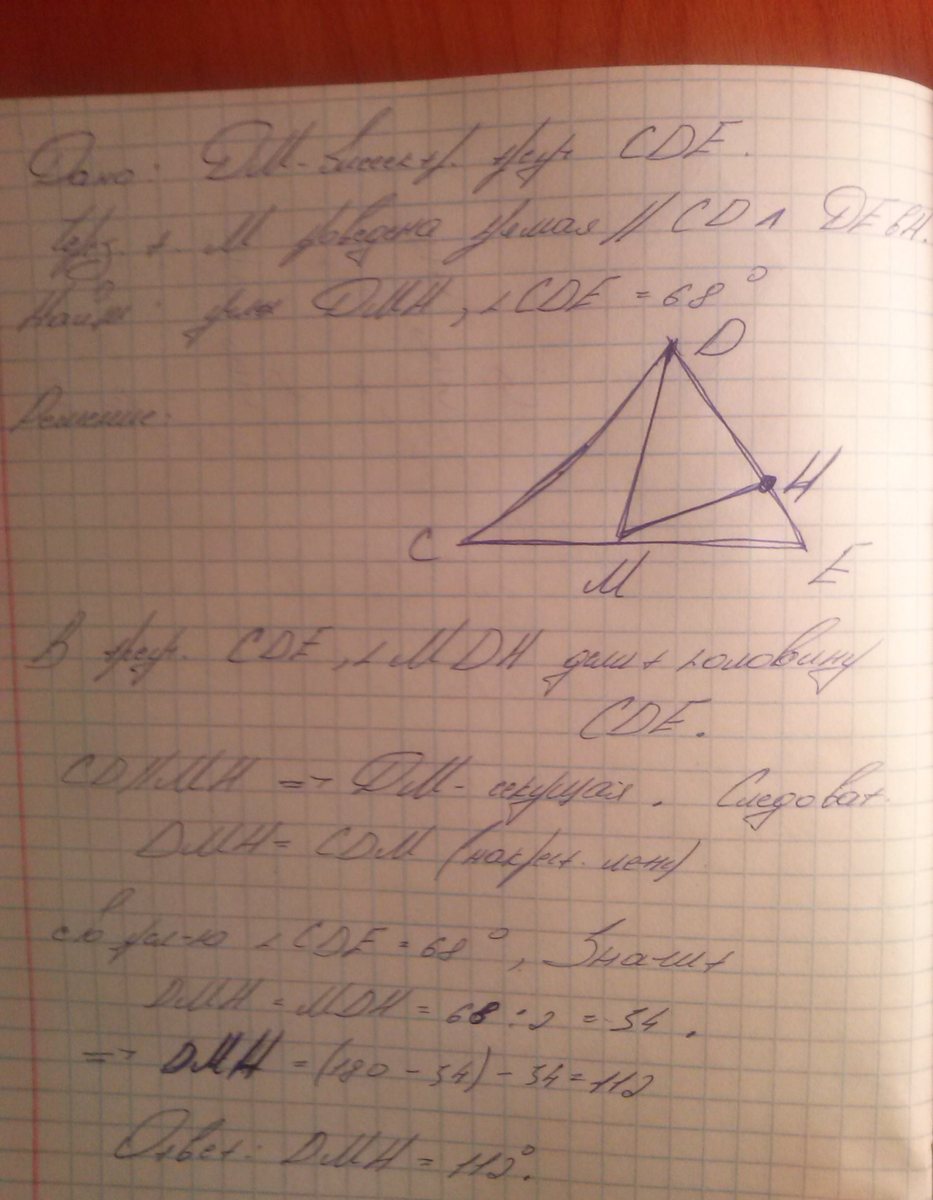 Дано: DM-биссектр. треуг. CDE.
Через т. M проведена прямая || CD ∧ DE в H.
Найти: углы DMH, ∠CDE = 68°
Решение:
D
H
C
M
E
В треуг. CDE, ∠MDH делит половину
CDE.
CD||MH => DM- секущая. Следоват.
DMH = CDM (накрест. леж)
∠CDE = 68°, Значит
DMH = MDH = 68 : 2 = 34.
=> DMH = (180 - 34) - 34 = 112
Ответ: DMH = 112°.